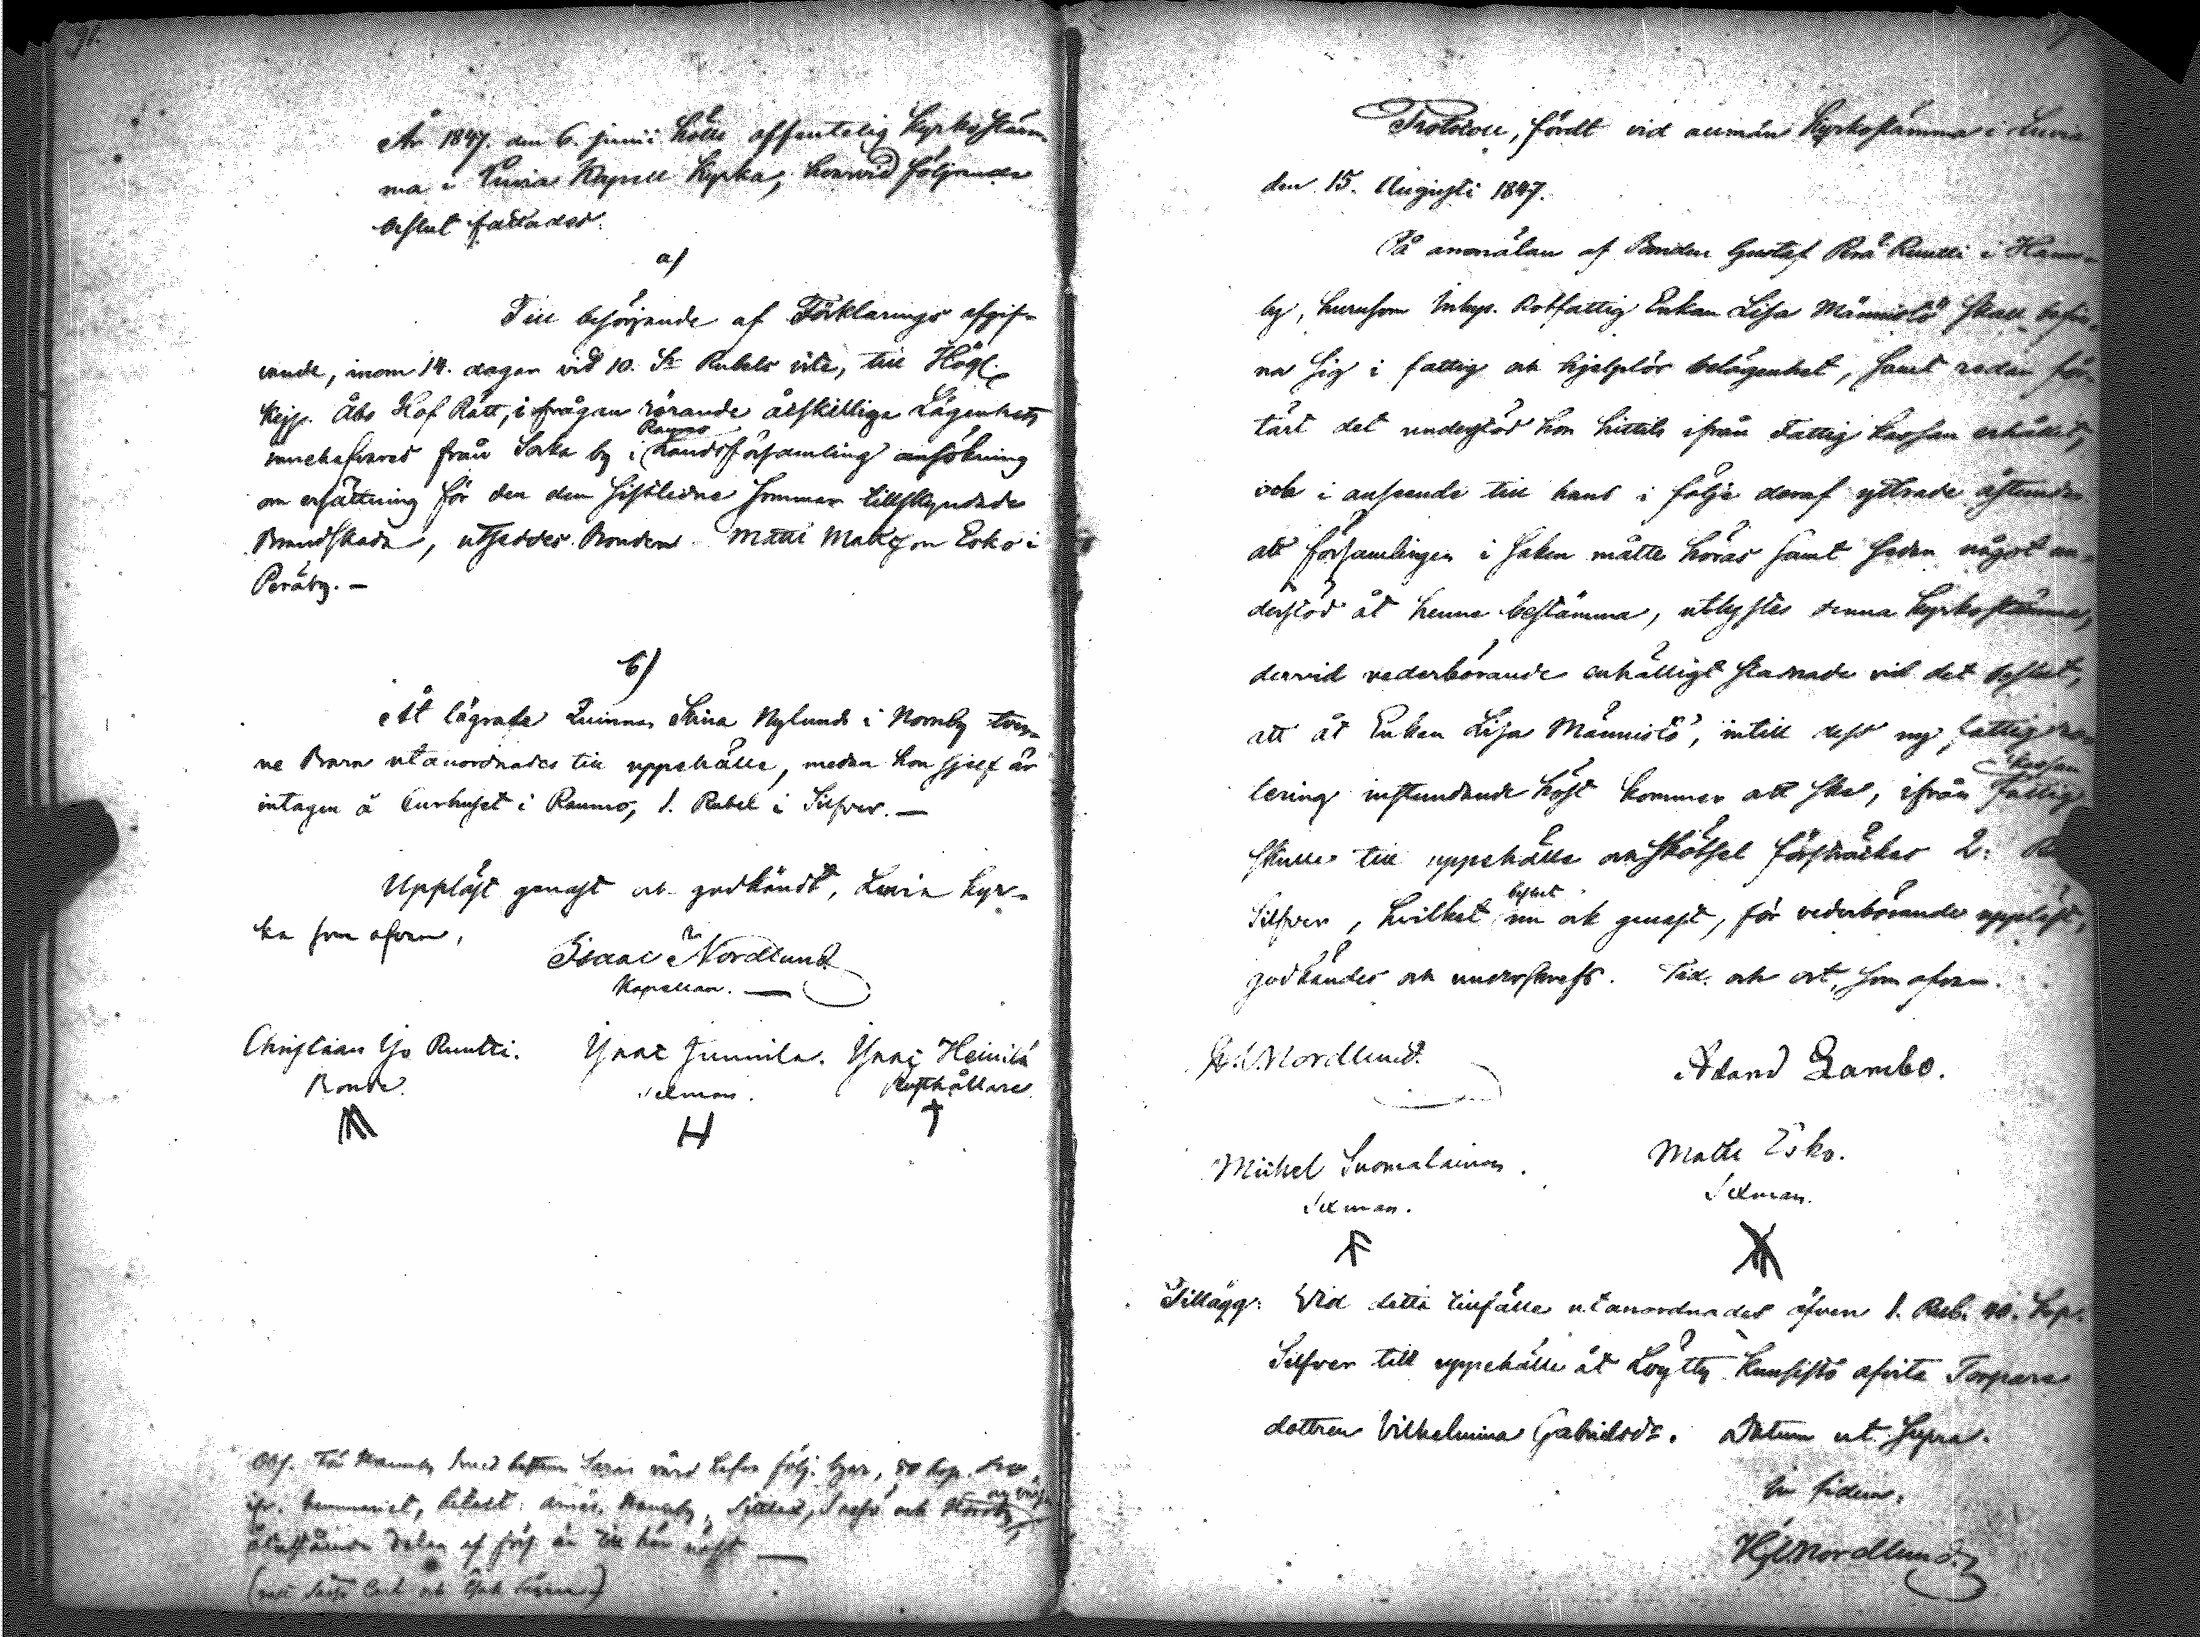 År 1847. den 6. Junii hölls offentelig Kyrkostäm-
ma i Luvia Kapell Kyrka, hvarvid följande
beslut fattades:
a/
Till besörjande af Förklarings afgif-
vande, inom 14. dagar vid 10. Sr Rubels vite, till Högl.
Kejs. Åbo Hof Rätt, i frågan rörande åtskillige Lägenhets
innehafvares från Sorka by i Raumo Landsförsamling ansökning
om ersättning för den dem sistledne Sommar tillskyndade
Brandskada, utseddes Bonden Matti Matsson Esko i
Peräby. —
b)
Åt lägrade Quinnan Stina Nylund i Norrby tven-
ne Barn utanordnades till uppehälle, medan hon sjelf är
intagen å Curhuset i Raumo, 1. Rubel i Silfver. —
Uppläst genast och godkändt, Luvia Kyr-
ka som ofvan,
Isaac Nordlund
Kapellan. —
Christian Yjo Ruutti. Isaac Junnila. Isaac Heinilä
Bonde. Sexman. Rusthållare.
Protocoll, fördt vid allmän Kyrkostämma i Luvia
den 15. Augusti 1847.
På anmälan af Bonden Gustaf Perä Ruutti i Hann-
by, hurusom Inhys. Rotfattig Enkan Lisa Männistö skall befin-
na sig i fattig och hjelplös belägenhet, samt redan för-
tärt det understöd hon hittils ifrån Fattig Kassan erhållit,
och i anseende till hans i följe deraf yttrade åstundan
att församlingen i saken måtte höras samt sedan något un-
derstöd åt henne bestämma, utlystes denna Kyrkostämma,
dervid vederbörande enhälligt stadnade vid det beslut,
att åt Enkan Lisa Männistö, intill dess ny fattig
lering instundande höst kommer att ske, ifrån fattig kassan
skulle till uppehälle och skötsel försträckas 2.
Silfver, hvilket beslut nu ock genast, för vederbörande uppläst,
godkändes och underskrefs. Tid och ort, som ofvan.
Nordlund. Adam Lambo.
Mickel Suomalainen. Matts Esko.
Sexman. Sexman.
Tillägg: Vid detta tillfälle utanordnades äfven 1. Rub. 40. Kop.
Silfver till uppehälle åt Löytty Kunsistö afvita Torpare
dottren Vilhelmina Gabrielsdr. Datum ut Supra.
In fidem,
Nordlund.